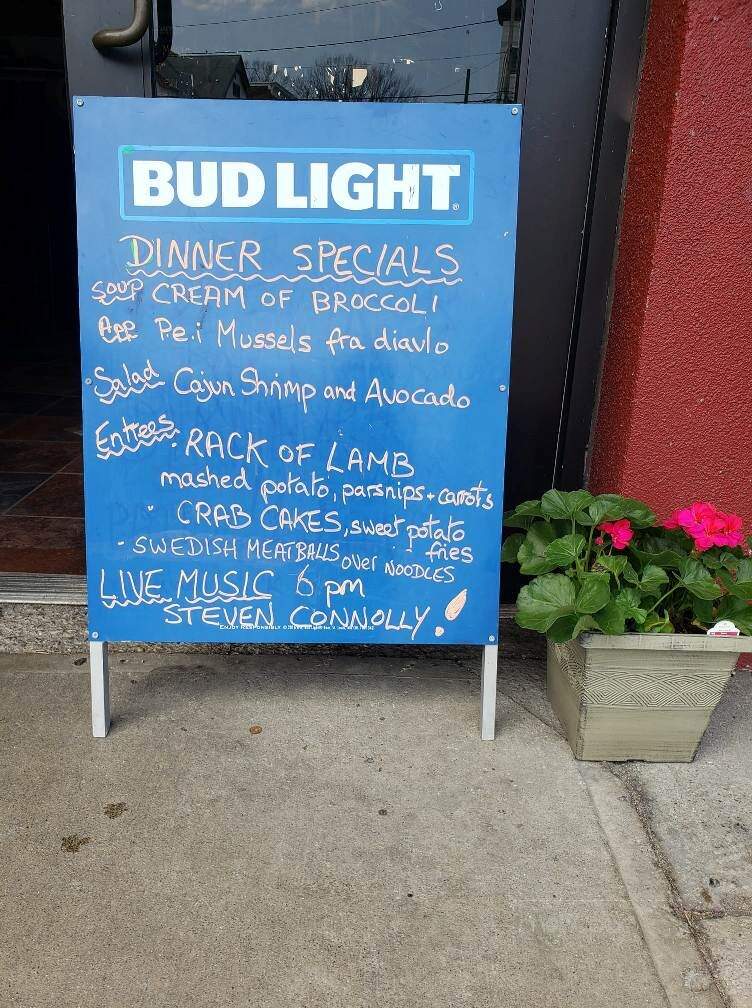 BUD LIGHT
DINNER SPECIALS
Soup CREAM OF BROCCOLI
App P.e.i Mussels fra diavlo
Salad Cajun Shrimp and Avocado
Entrees · RACK OF LAMB
mashed potato, parsnips + carrots
· CRAB CAKES, sweet potato fries
· SWEDISH MEATBALLS over NOODLES
LIVE MUSIC 6 pm
STEVEN CONNOLLY!
ENJOY RESPONSIBLY